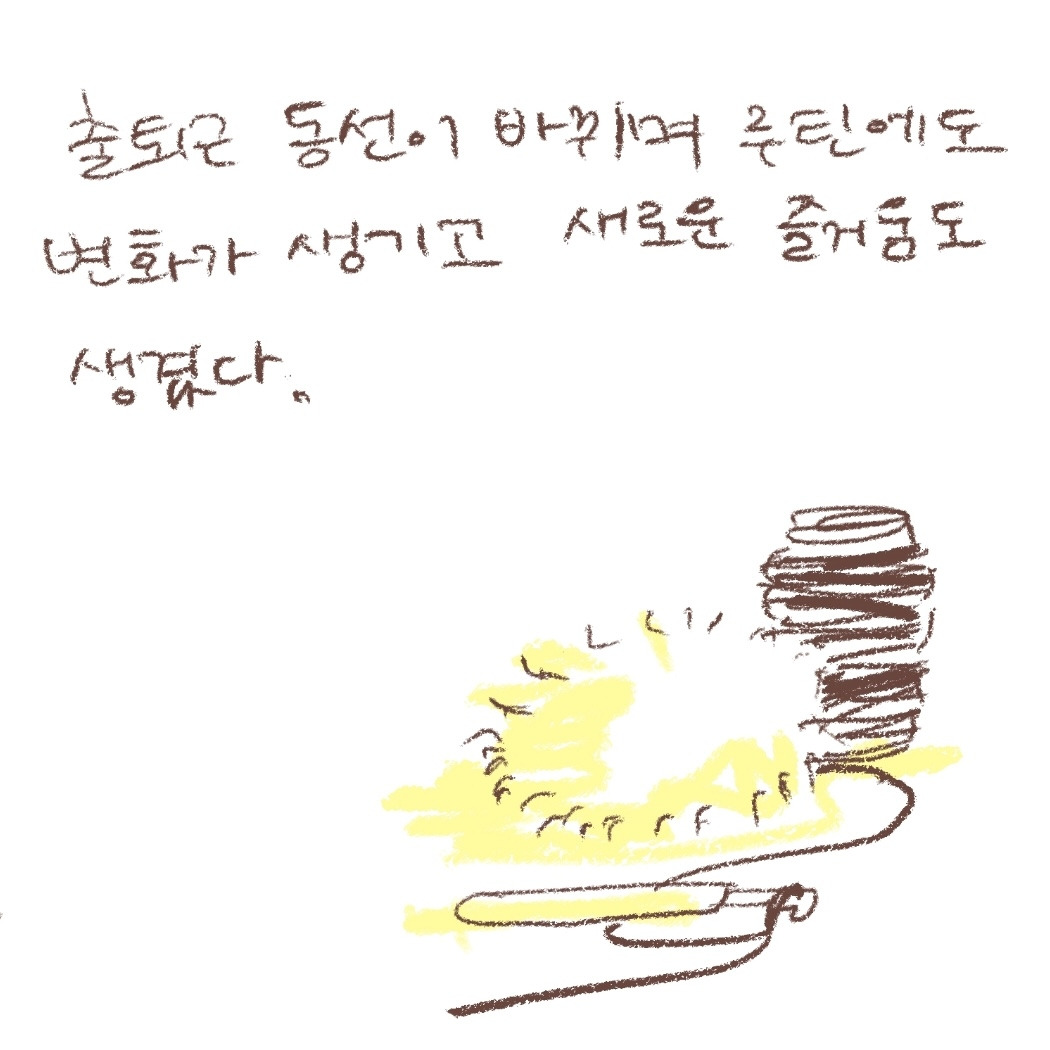 출퇴근 동선이 바뀌며 루틴에도
변화가 생기고 새로운 즐거움도
생겼다.